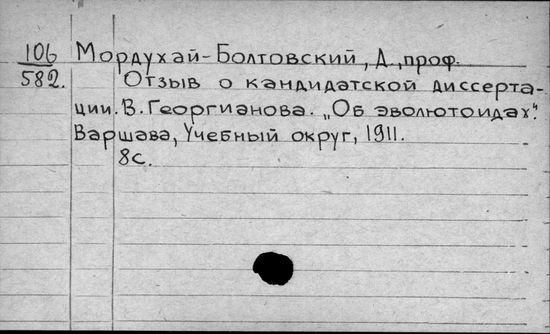 106 Мордухай-Болтовский, Д., проф.
582. Отзыв о кандидатской диссерта-
ции В. Георгианова. „Об эволютоидах".
Варшава, Учебный округ, 1911.
8с.